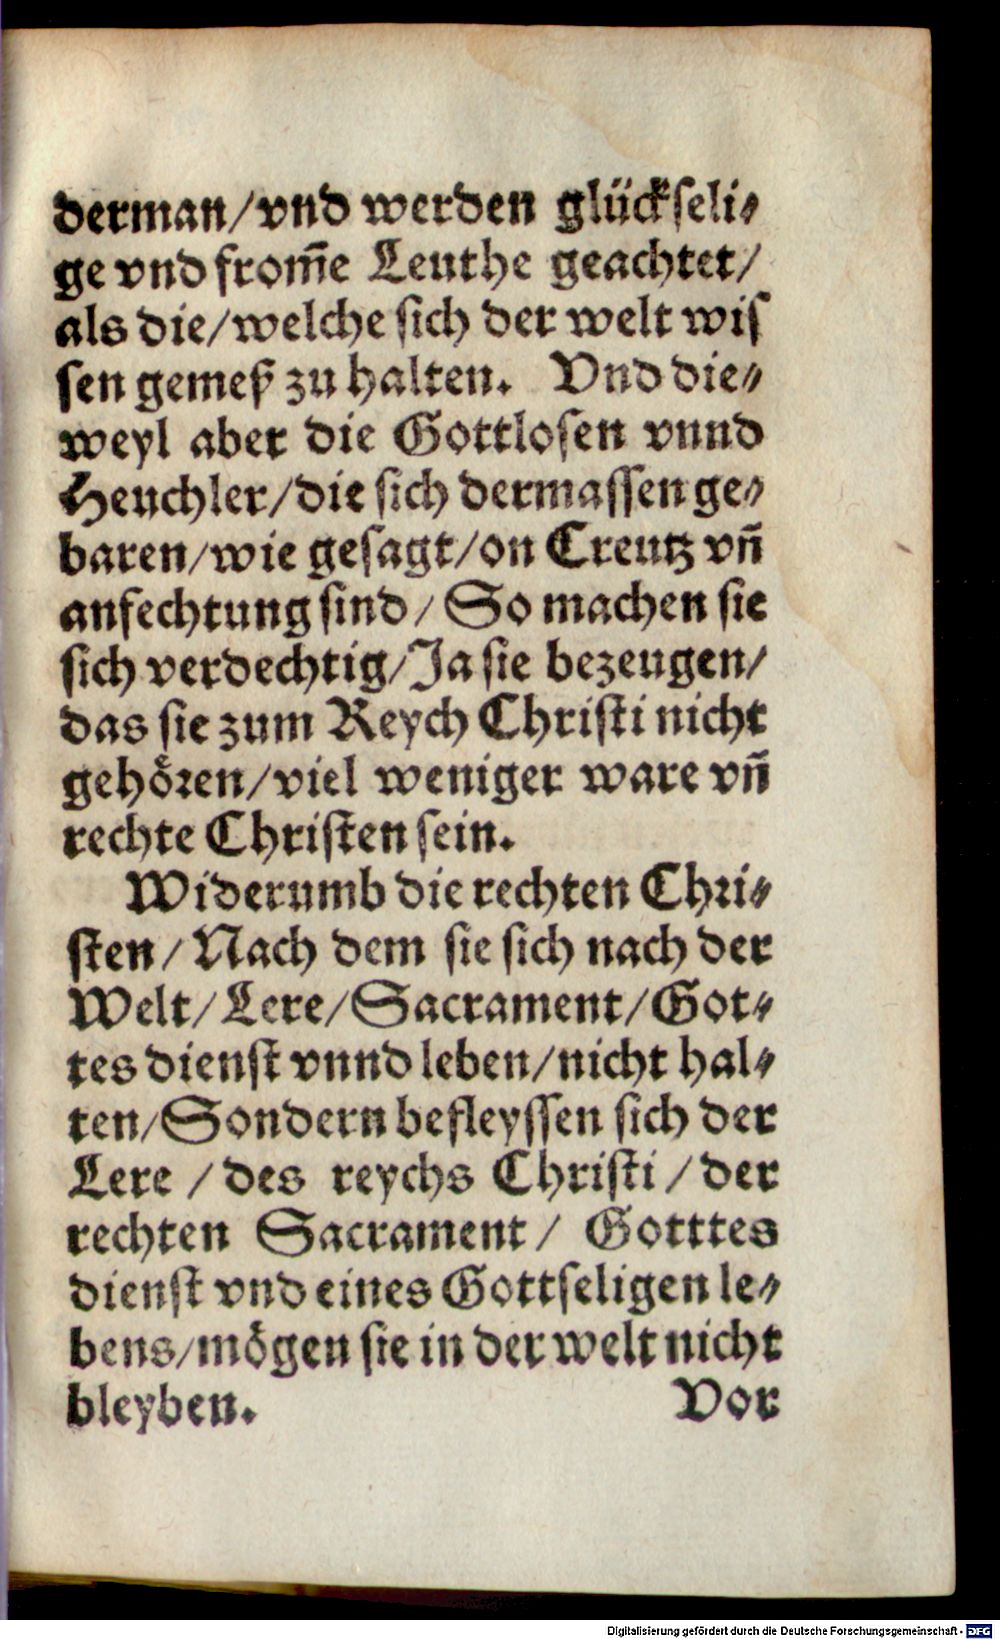 derman/vnd werden glückseli⸗
ge vnd from̃e Leuthe geachtet/
als die/welche sich der welt wis
sen gemeß zu halten. Vnd die⸗
weyl aber die Gottlosen vnnd
Heuchler/die sich dermassen ge⸗
baren/wie gesagt/on Creutz vñ
anfechtung sind/ So machen sie
sich verdechtig/Ja sie bezeugen/
das sie zum Reych Christi nicht
gehören/viel weniger ware vñ
rechte Christen sein.
Widerumb die rechten Chri⸗
sten/Nach dem sie sich nach der
Welt/Lere/Sacrament/Got⸗
tes dienst vnnd leben/nicht hal⸗
ten/Sondern befleyssen sich der
Lere /des reychs Christi/der
rechten Sacrament/ Gotttes
dienst vnd eines Gottseligen le⸗
bens/mögen sie in der welt nicht
bleyben. Vor
Digitalisierung gefördert durch die Deutsche Forschungsgemeinschaft - DFG